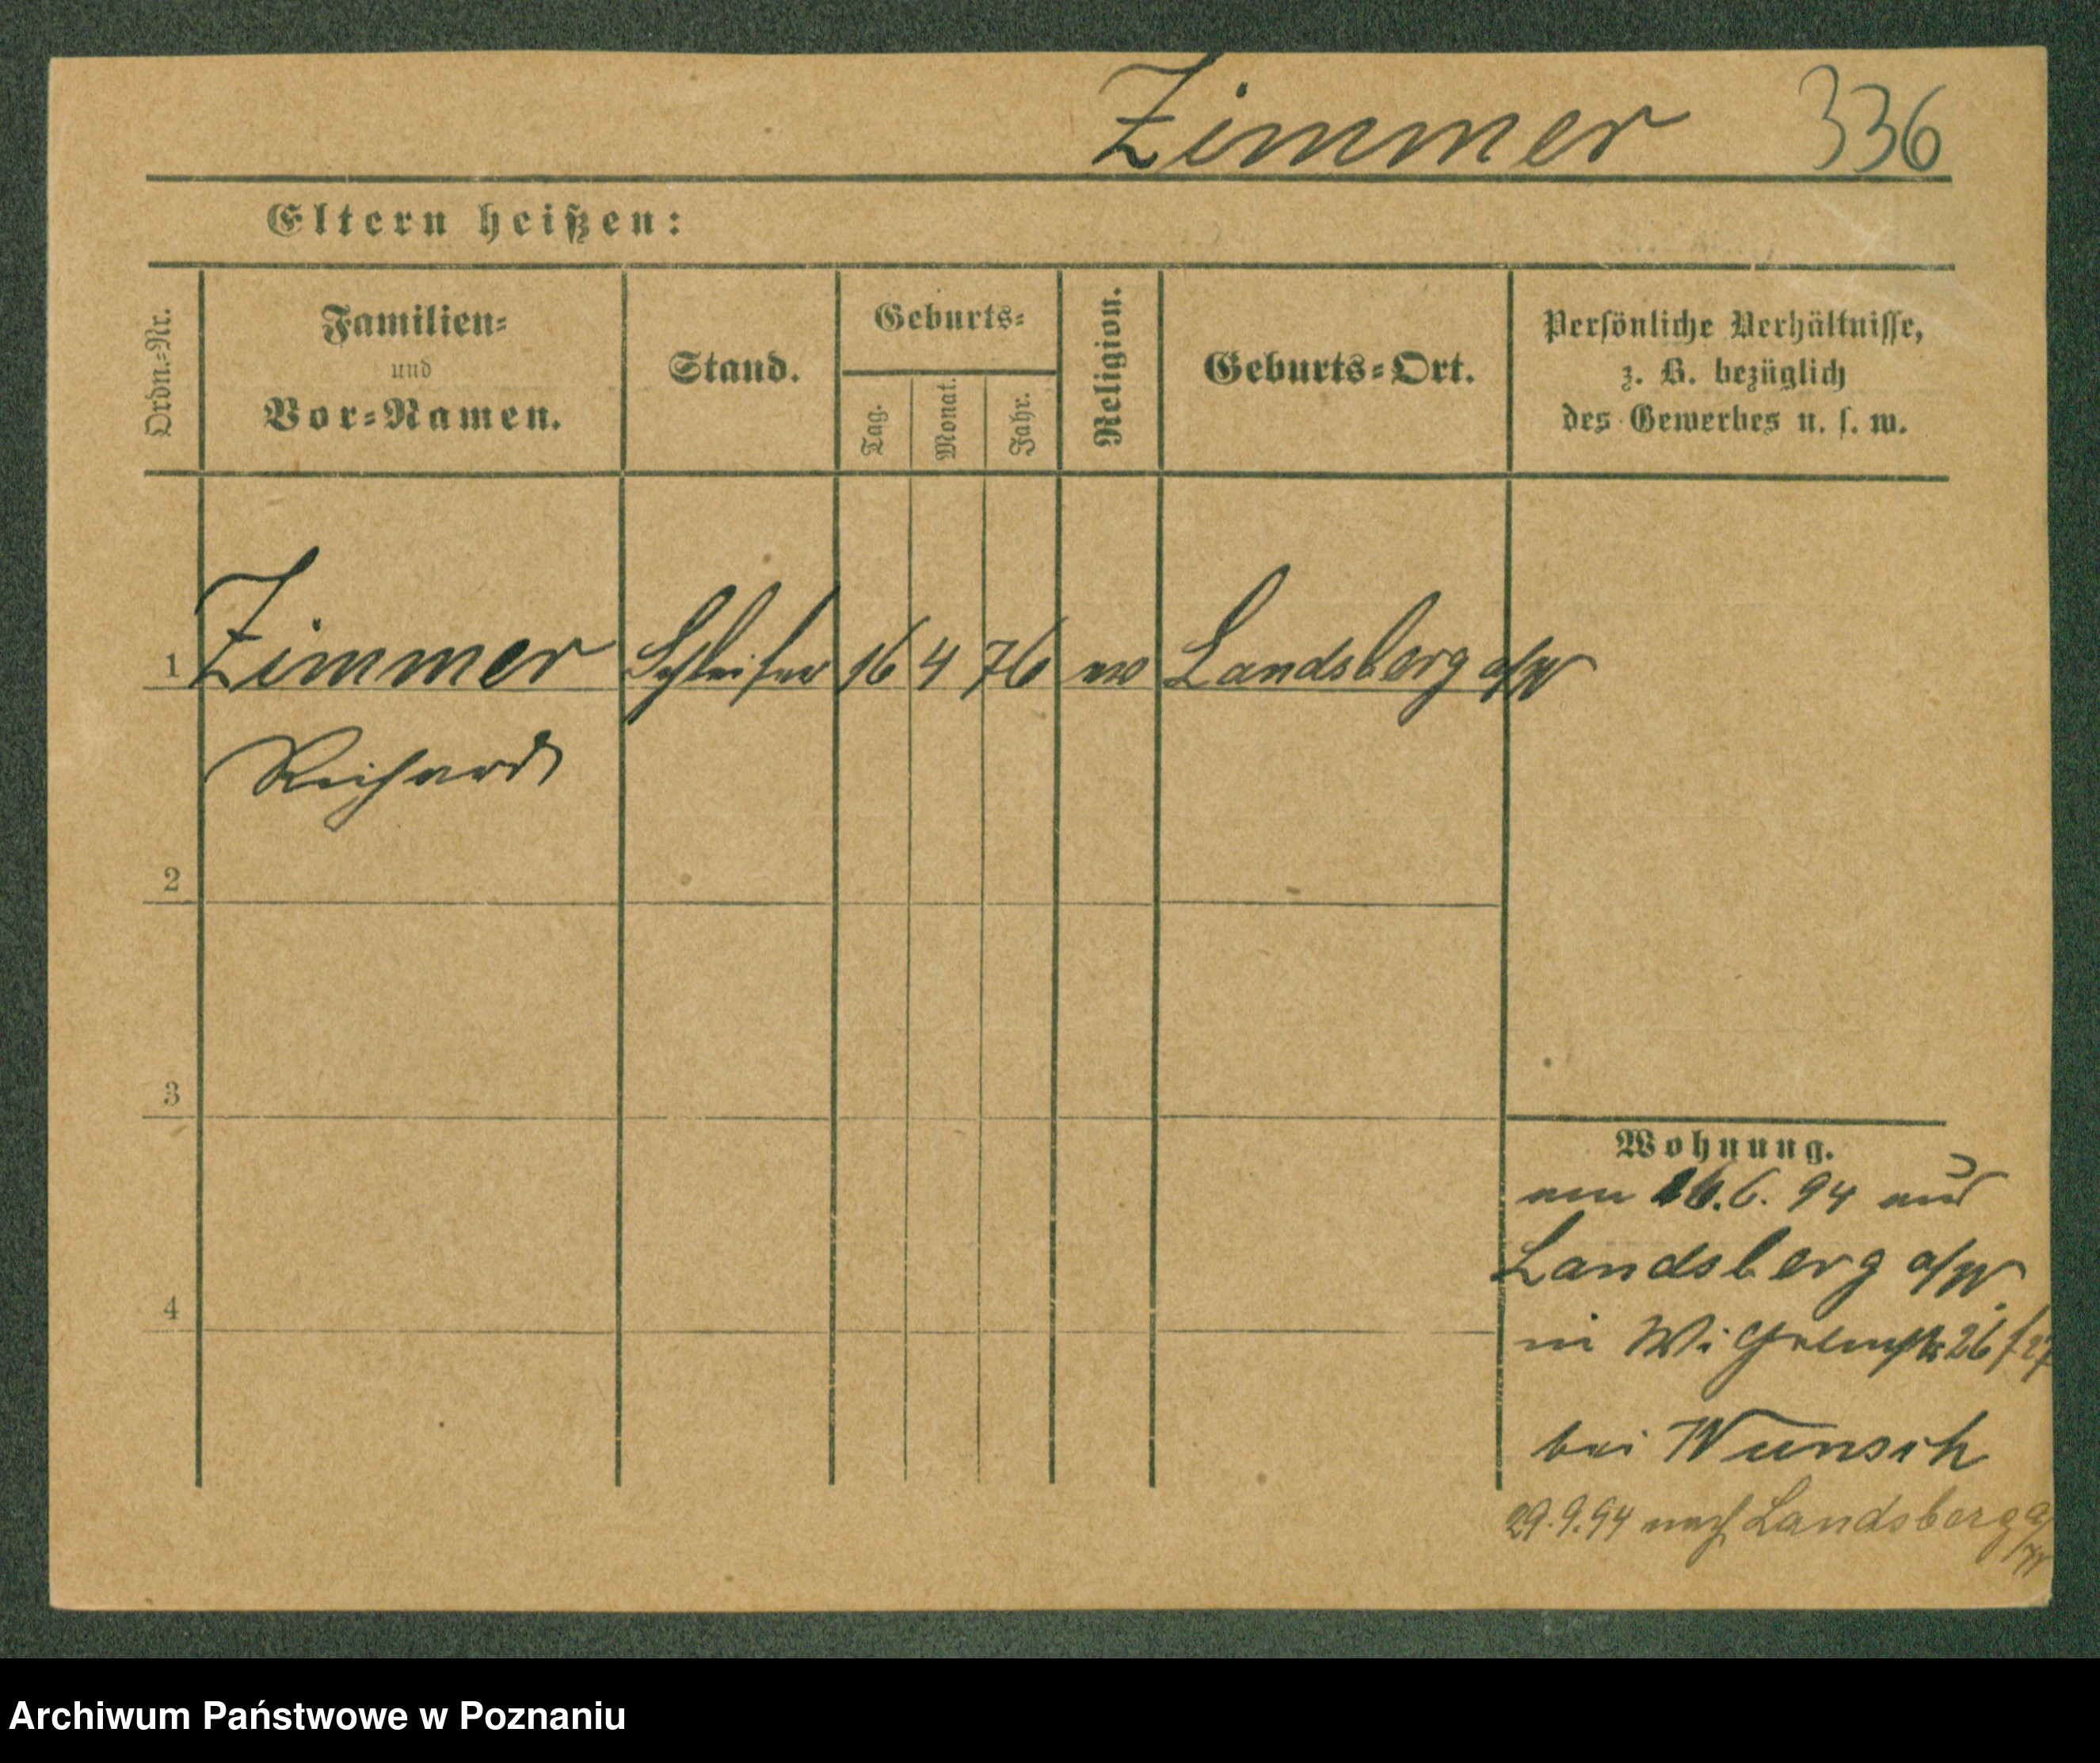 Zimmer 336
Eltern heißen:
Ordn.=Nr.
Familien=
und
Vor=Namen.
Stand.
Geburts=
Tag.
Monat.
Jahr.
Religion.
Geburts=Ort.
Persönliche Verhältnisse,
z. B. bezüglich
des Gewerbes u. s. w.
1 Zimmer Schleifer 16 4 76 ev Landsberg a/W
Richard
2
3
4
Wohnung.
am 16.6. 94 aus
Landsberg a/W.
in Wilhelmstr 26/27
bei Wunsch
29.9.94 nach Landsberg a/W
Archiwum Państwowe w Poznaniu